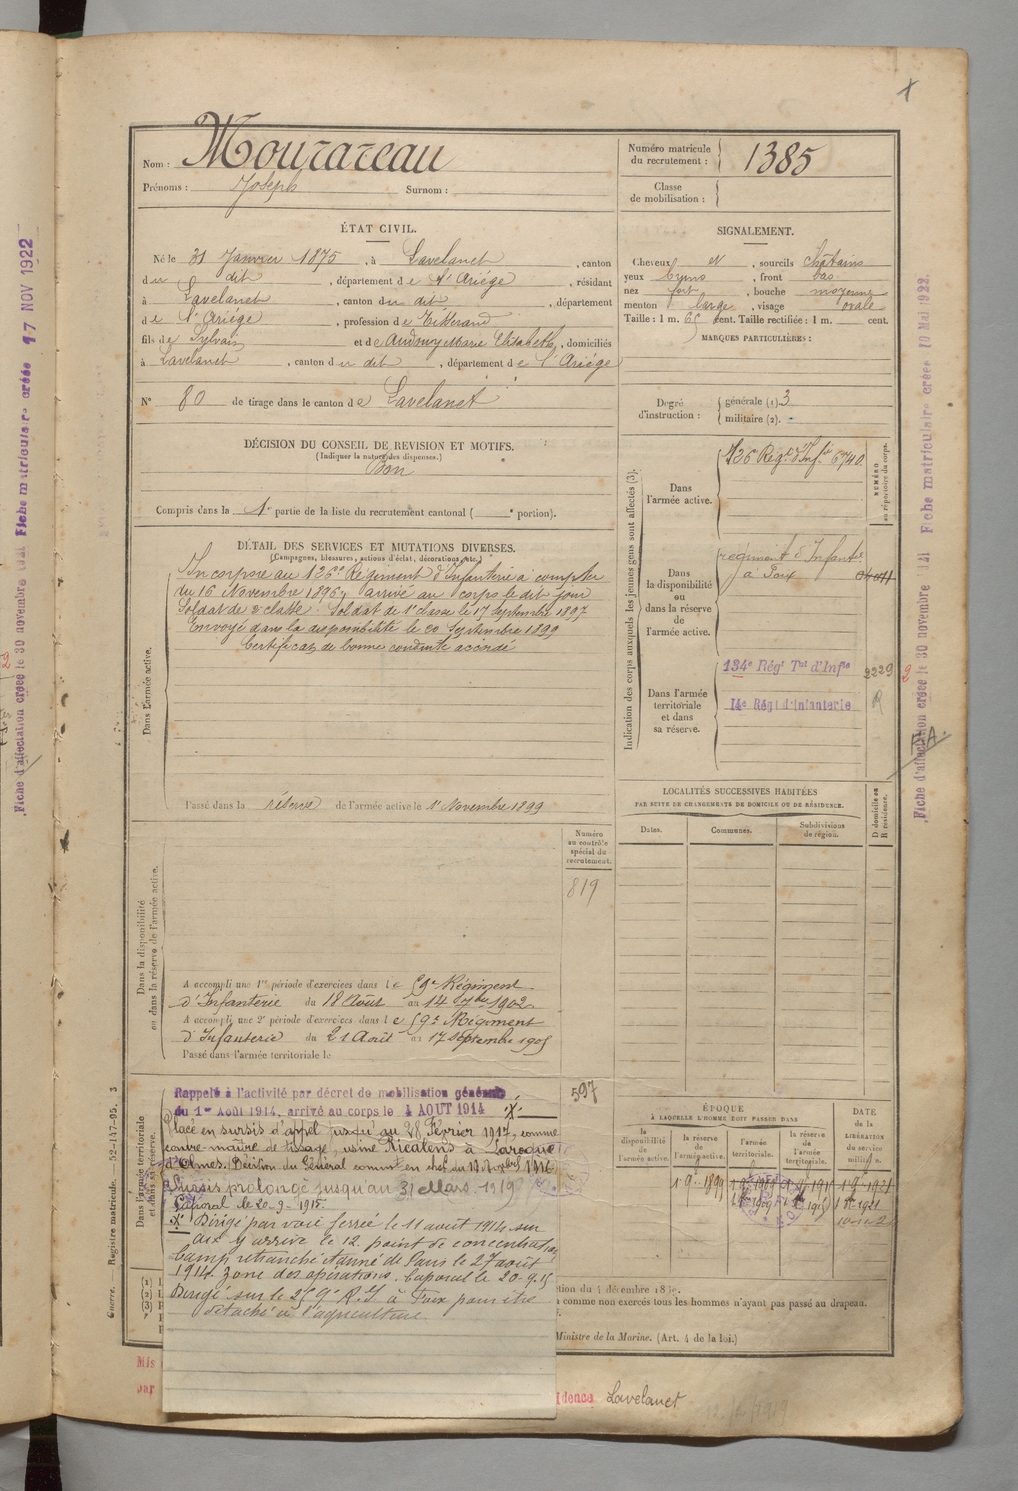 Nom : Mourareau
Prénoms : Joseph Surnom :
Numéro matricule du recrutement : 1385
Classe de mobilisation :
ÉTAT CIVIL.
Né le 31 Janvier 1875, à Lavelanet, canton
du dit, département de l'Ariége, résidant
à Lavelanet, canton du dit, département
de l'Ariége, profession de Tisserand
fils de Sylvain et de Audouy Marie Elisabeth, domiciliés
à Lavelanet, canton du dit, département de l'Ariége
N° 80 de tirage dans le canton de Lavelanet
SIGNALEMENT.
Cheveux N, sourcils châtains
yeux bruns, front bas
nez fort, bouche moyenne
menton large, visage ovale
Taille : 1 m. 65 cent. Taille rectifiée : 1 m. cent.
MARQUES PARTICULIÈRES :
Degré d'instruction : générale (1) 3
militaire (2). -
DÉCISION DU CONSEIL DE REVISION ET MOTIFS.
(Indiquer la nature des dispenses.)
Bon
Compris dans la 1e partie de la liste du recrutement cantonal ( portion).
DÉTAIL DES SERVICES ET MUTATIONS DIVERSES.
(Campagnes, blessures, actions d'éclat, décorations, etc.)
Dans l'armée active.
Incorporé au 126e Régiment d'Infanterie à compter
du 16 Novembre 1896, arrivé au corps le dit jour
Soldat de 2e classe. Soldat de 1e classe le 17 Septembre 1897
Envoyé dans la disponibilité le 20 Septembre 1899
Certificat de bonne conduite accordé
Passé dans la réserve de l'armée active le 1er Novembre 1899
Indication des corps auxquels les jeunes gens sont affectés (3).
NUMÉRO au répertoire du corps.
Dans l'armée active.
126 Régt d'Infie 6740
Dans la disponibilité ou dans la réserve de l'armée active.
régiment d'Infante
à Foix
Dans l'armée territoriale et dans sa réserve.
134e Régt Tal d'Infie 2229
14e Régt d'Infanterie R
LOCALITÉS SUCCESSIVES HABITÉES
PAR SUITE DE CHANGEMENTS DE DOMICILE OU DE RÉSIDENCE.
Dates. Communes. Subdivisions de région. D domicile ou R résidence.
Dans la disponibilité ou dans la réserve de l'armée active.
Numéro au contrôle spécial du recrutement.
819
A accompli une 1re période d'exercices dans le 59e Régiment
d'Infanterie du 18 Août au 14 7bre 1902
A accompli une 2e période d'exercices dans le 59e Régiment
d'Infanterie du 21 Août au 17 Septembre 1905
Passé dans l'armée territoriale le
Dans l'armée territoriale et dans sa réserve.
597
Rappelé à l'activité par décret de mobilisation générale
du 1er Août 1914, arrivé au corps le 4 AOUT 1914
Placé en sursis d'appel jusqu'au 28 Février 1917, comme
contre-maître de tissage, usine Ricalens à Laroque
d'Olmes. Décision du Général commt en chef du 19 1916
Sursis prolongé jusqu'au 31 Mars 1919
Caporal le 20-9-1915.
Dirigé par voie ferrée le 11 août 1914 sur
y arrive le 12. point de concentration
Camp retranché de Paris le 27 août
1914. Zone des opérations. Caporal le 20-9-15
Dirigé sur le 59e R.I à Foix pour être
détaché à l'agriculture
ÉPOQUE
À LAQUELLE L'HOMME DOIT PASSER DANS
la disponibilité de l'armée active.
la réserve de l'armée active.
l'armée territoriale.
la réserve de l'armée territoriale.
DATE DE LA LIBÉRATION du service militaire.
1-9-1899
a comme non exercés tous les hommes n'ayant pas passé au drapeau.
Ministre de la Marine. (Art. 4 de la loi.)
Mis
par
idence Lavelanet
12/2/1919
Guerre. — Registre matricule. 52-147-95. 3
Fiche d'affectation créée le 30 novembre
Fiche matriculaire créée 17 NOV 1922
Fiche d'affectation créée le 30 novembre
Fiche matriculaire créée 10 Mai 1922.
F.A.